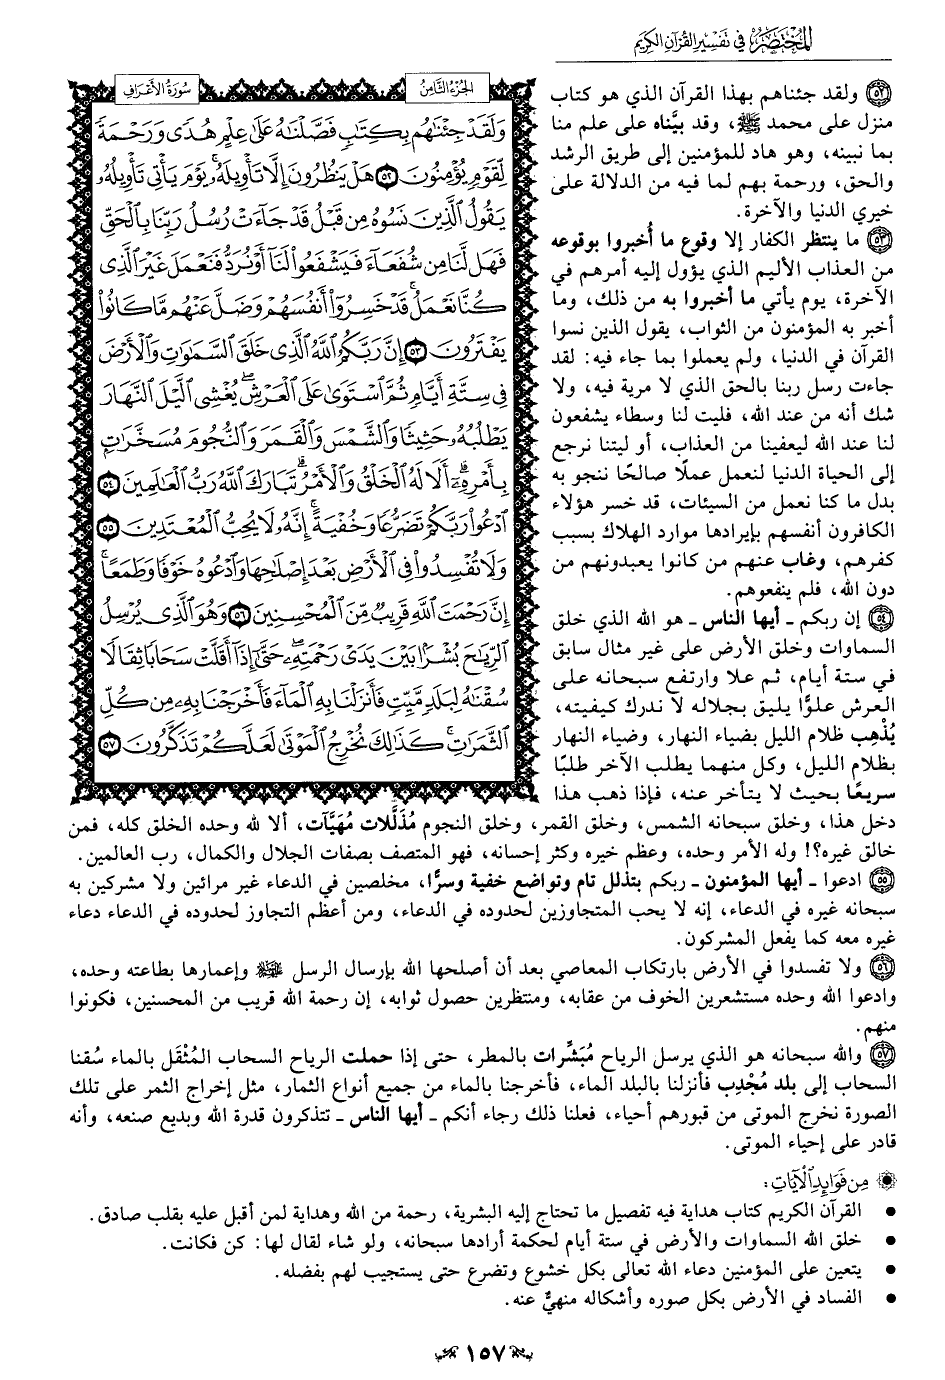 المختصر في تفسير القرآن الكريم
الجزء الثامن
سورة الأعراف
وَلَقَدْ جِئْنَٰهُم بِكِتَٰبٍ فَصَّلْنَٰهُ عَلَىٰ عِلْمٍ هُدًى وَرَحْمَةً
لِّقَوْمٍ يُؤْمِنُونَ ٥٢ هَلْ يَنظُرُونَ إِلَّا تَأْوِيلَهُۥ ۚ يَوْمَ يَأْتِى تَأْوِيلُهُۥ
يَقُولُ ٱلَّذِينَ نَسُوهُ مِن قَبْلُ قَدْ جَآءَتْ رُسُلُ رَبِّنَا بِٱلْحَقِّ
فَهَل لَّنَا مِن شُفَعَآءَ فَيَشْفَعُوا۟ لَنَآ أَوْ نُرَدُّ فَنَعْمَلَ غَيْرَ ٱلَّذِى
كُنَّا نَعْمَلُ ۚ قَدْ خَسِرُوٓا۟ أَنفُسَهُمْ وَضَلَّ عَنْهُم مَّا كَانُوا۟
يَفْتَرُونَ ٥٣ إِنَّ رَبَّكُمُ ٱللَّهُ ٱلَّذِى خَلَقَ ٱلسَّمَٰوَٰتِ وَٱلْأَرْضَ
فِى سِتَّةِ أَيَّامٍ ثُمَّ ٱسْتَوَىٰ عَلَى ٱلْعَرْشِ ۖ يُغْشِى ٱلَّيْلَ ٱلنَّهَارَ
يَطْلُبُهُۥ حَثِيثًا وَٱلشَّمْسَ وَٱلْقَمَرَ وَٱلنُّجُومَ مُسَخَّرَٰتٍۭ
بِأَمْرِهِۦٓ ۗ أَلَا لَهُ ٱلْخَلْقُ وَٱلْأَمْرُ ۗ تَبَارَكَ ٱللَّهُ رَبُّ ٱلْعَٰلَمِينَ ٥٤
ٱدْعُوا۟ رَبَّكُمْ تَضَرُّعًا وَخُفْيَةً ۚ إِنَّهُۥ لَا يُحِبُّ ٱلْمُعْتَدِينَ ٥٥
وَلَا تُفْسِدُوا۟ فِى ٱلْأَرْضِ بَعْدَ إِصْلَٰحِهَا وَٱدْعُوهُ خَوْفًا وَطَمَعًا ۚ
إِنَّ رَحْمَتَ ٱللَّهِ قَرِيبٌ مِّنَ ٱلْمُحْسِنِينَ ٥٦ وَهُوَ ٱلَّذِى يُرْسِلُ
ٱلرِّيَٰحَ بُشْرًۢا بَيْنَ يَدَىْ رَحْمَتِهِۦ ۖ حَتَّىٰٓ إِذَآ أَقَلَّتْ سَحَابًا ثِقَالًا
سُقْنَٰهُ لِبَلَدٍ مَّيِّتٍ فَأَنزَلْنَا بِهِ ٱلْمَآءَ فَأَخْرَجْنَا بِهِۦ مِن كُلِّ
ٱلثَّمَرَٰتِ ۚ كَذَٰلِكَ نُخْرِجُ ٱلْمَوْتَىٰ لَعَلَّكُمْ تَذَكَّرُونَ ٥٧
٥٢ ولقد جئناهم بهذا القرآن الذي هو كتاب
منزل على محمد ﷺ، وقد بيَّناه على علم منا
بما نبينه، وهو هاد للمؤمنين إلى طريق الرشد
والحق، ورحمة بهم لما فيه من الدلالة على
خيري الدنيا والآخرة.
٥٣ ما ينتظر الكفار إلا وقوع ما أُخبروا بوقوعه
من العذاب الأليم الذي يؤول إليه أمرهم في
الآخرة، يوم يأتي ما أخبروا به من ذلك، وما
أخبر به المؤمنون من الثواب، يقول الذين نسوا
القرآن في الدنيا، ولم يعملوا بما جاء فيه: لقد
جاءت رسل ربنا بالحق الذي لا مرية فيه، ولا
شك أنه من عند الله، فليت لنا وسطاء يشفعون
لنا عند الله ليعفينا من العذاب، أو ليتنا نرجع
إلى الحياة الدنيا لنعمل عملًا صالحًا ننجو به
بدل ما كنا نعمل من السيئات، قد خسر هؤلاء
الكافرون أنفسهم بإيرادها موارد الهلاك بسبب
كفرهم، وغاب عنهم من كانوا يعبدونهم من
دون الله، فلم ينفعوهم.
٥٤ إن ربكم ـ أيها الناس ـ هو الله الذي خلق
السماوات وخلق الأرض على غير مثال سابق
في ستة أيام، ثم علا وارتفع سبحانه على
العرش علوًّا يليق بجلاله لا ندرك كيفيته،
يُذْهِب ظلام الليل بضياء النهار، وضياء النهار
بظلام الليل، وكل منهما يطلب الآخر طلبًا
سريعًا بحيث لا يتأخر عنه، فإذا ذهب هذا
دخل هذا، وخلق سبحانه الشمس، وخلق القمر، وخلق النجوم مُذَلَّلات مُهَيَّآت، ألا لله وحده الخلق كله، فمن
خالق غيره؟! وله الأمر وحده، وعظم خيره وكثر إحسانه، فهو المتصف بصفات الجلال والكمال، رب العالمين.
٥٥ ادعوا ـ أيها المؤمنون ـ ربكم بتذلل تام وتواضع خفية وسرًّا، مخلصين في الدعاء غير مرائين ولا مشركين به
سبحانه غيره في الدعاء، إنه لا يحب المتجاوزين لحدوده في الدعاء، ومن أعظم التجاوز لحدوده في الدعاء دعاء
غيره معه كما يفعل المشركون.
٥٦ ولا تفسدوا في الأرض بارتكاب المعاصي بعد أن أصلحها الله بإرسال الرسل ﷺ وإعمارها بطاعته وحده،
وادعوا الله وحده مستشعرين الخوف من عقابه، ومنتظرين حصول ثوابه، إن رحمة الله قريب من المحسنين، فكونوا
منهم.
٥٧ والله سبحانه هو الذي يرسل الرياح مُبَشِّرات بالمطر، حتى إذا حملت الرياح السحاب المُثْقَل بالماء سُقنا
السحاب إلى بلد مُجْدِب فأنزلنا بالبلد الماء، فأخرجنا بالماء من جميع أنواع الثمار، مثل إخراج الثمر على تلك
الصورة نخرج الموتى من قبورهم أحياء، فعلنا ذلك رجاء أنكم ـ أيها الناس ـ تتذكرون قدرة الله وبديع صنعه، وأنه
قادر على إحياء الموتى.
من فوائد الآيات:
• القرآن الكريم كتاب هداية فيه تفصيل ما تحتاج إليه البشرية، رحمة من الله وهداية لمن أقبل عليه بقلب صادق.
• خلق الله السماوات والأرض في ستة أيام لحكمة أرادها سبحانه، ولو شاء لقال لها: كن فكانت.
• يتعين على المؤمنين دعاء الله تعالى بكل خشوع وتضرع حتى يستجيب لهم بفضله.
• الفساد في الأرض بكل صوره وأشكاله منهيٌّ عنه.
١٥٧